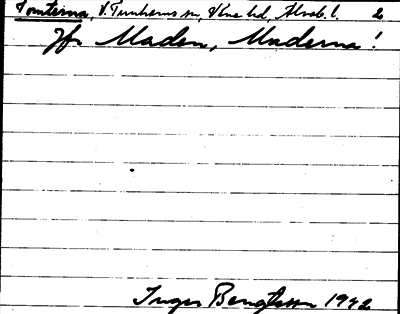 Tomterna, V. Tunhems sn, Väne hd, Älvsb. l. 2
Jfr Maden, Maderna!
Inger Bengtsson 1942